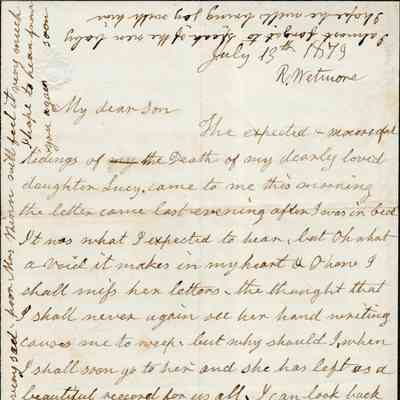 I almost forgot to speak of the new baby
I hope he will bring joy with him
July 13th 1879
R. Wetmore
My dear Son
The expected & mournful
tidings of my the Death of my dearly loved
daughter Lucy, came to me this morning
the letter came last evening after I was in bed
It was what I expected to hear, but Oh what
a void it makes in my heart & O how I
shall miss her letters. the thought that
I shall never again see her hand writing
causes me to weep. but why should I, when
I shall soon go to her and she has left us a
beautiful record for us all. I can look back
very sad - poor Mrs will feel it very much
I hope to hear from
you again soon